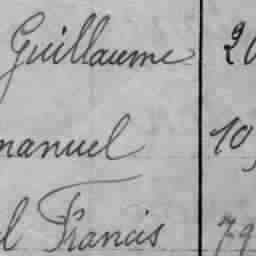 Guillaume 20
manuel 10,
l Francis 79